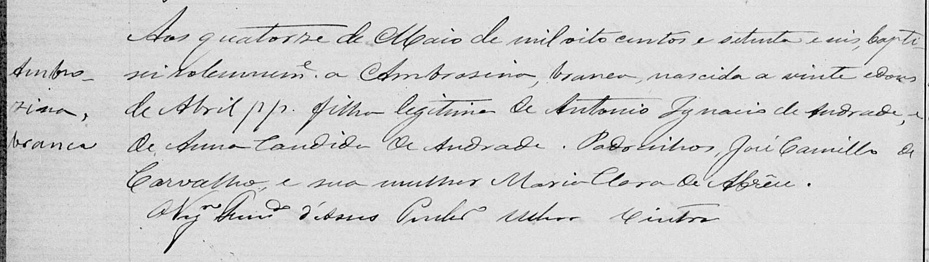 Aos quatorze de Maio de mil oito centos e setenta e seis, bapti-
sei solemnem.e a Ambrosina, branca, nascida a vinte e dous
de Abril pp. filha legitima de Antonio Ignacio de Andrade, e
de Anna Candida de Andrade. Padrinhos, José Camillo de
Carvalho, e sua mulher Maria Clara de Abrêu.
O Vig.ro d'Assis Cintra
Ambro-
sina,
branca